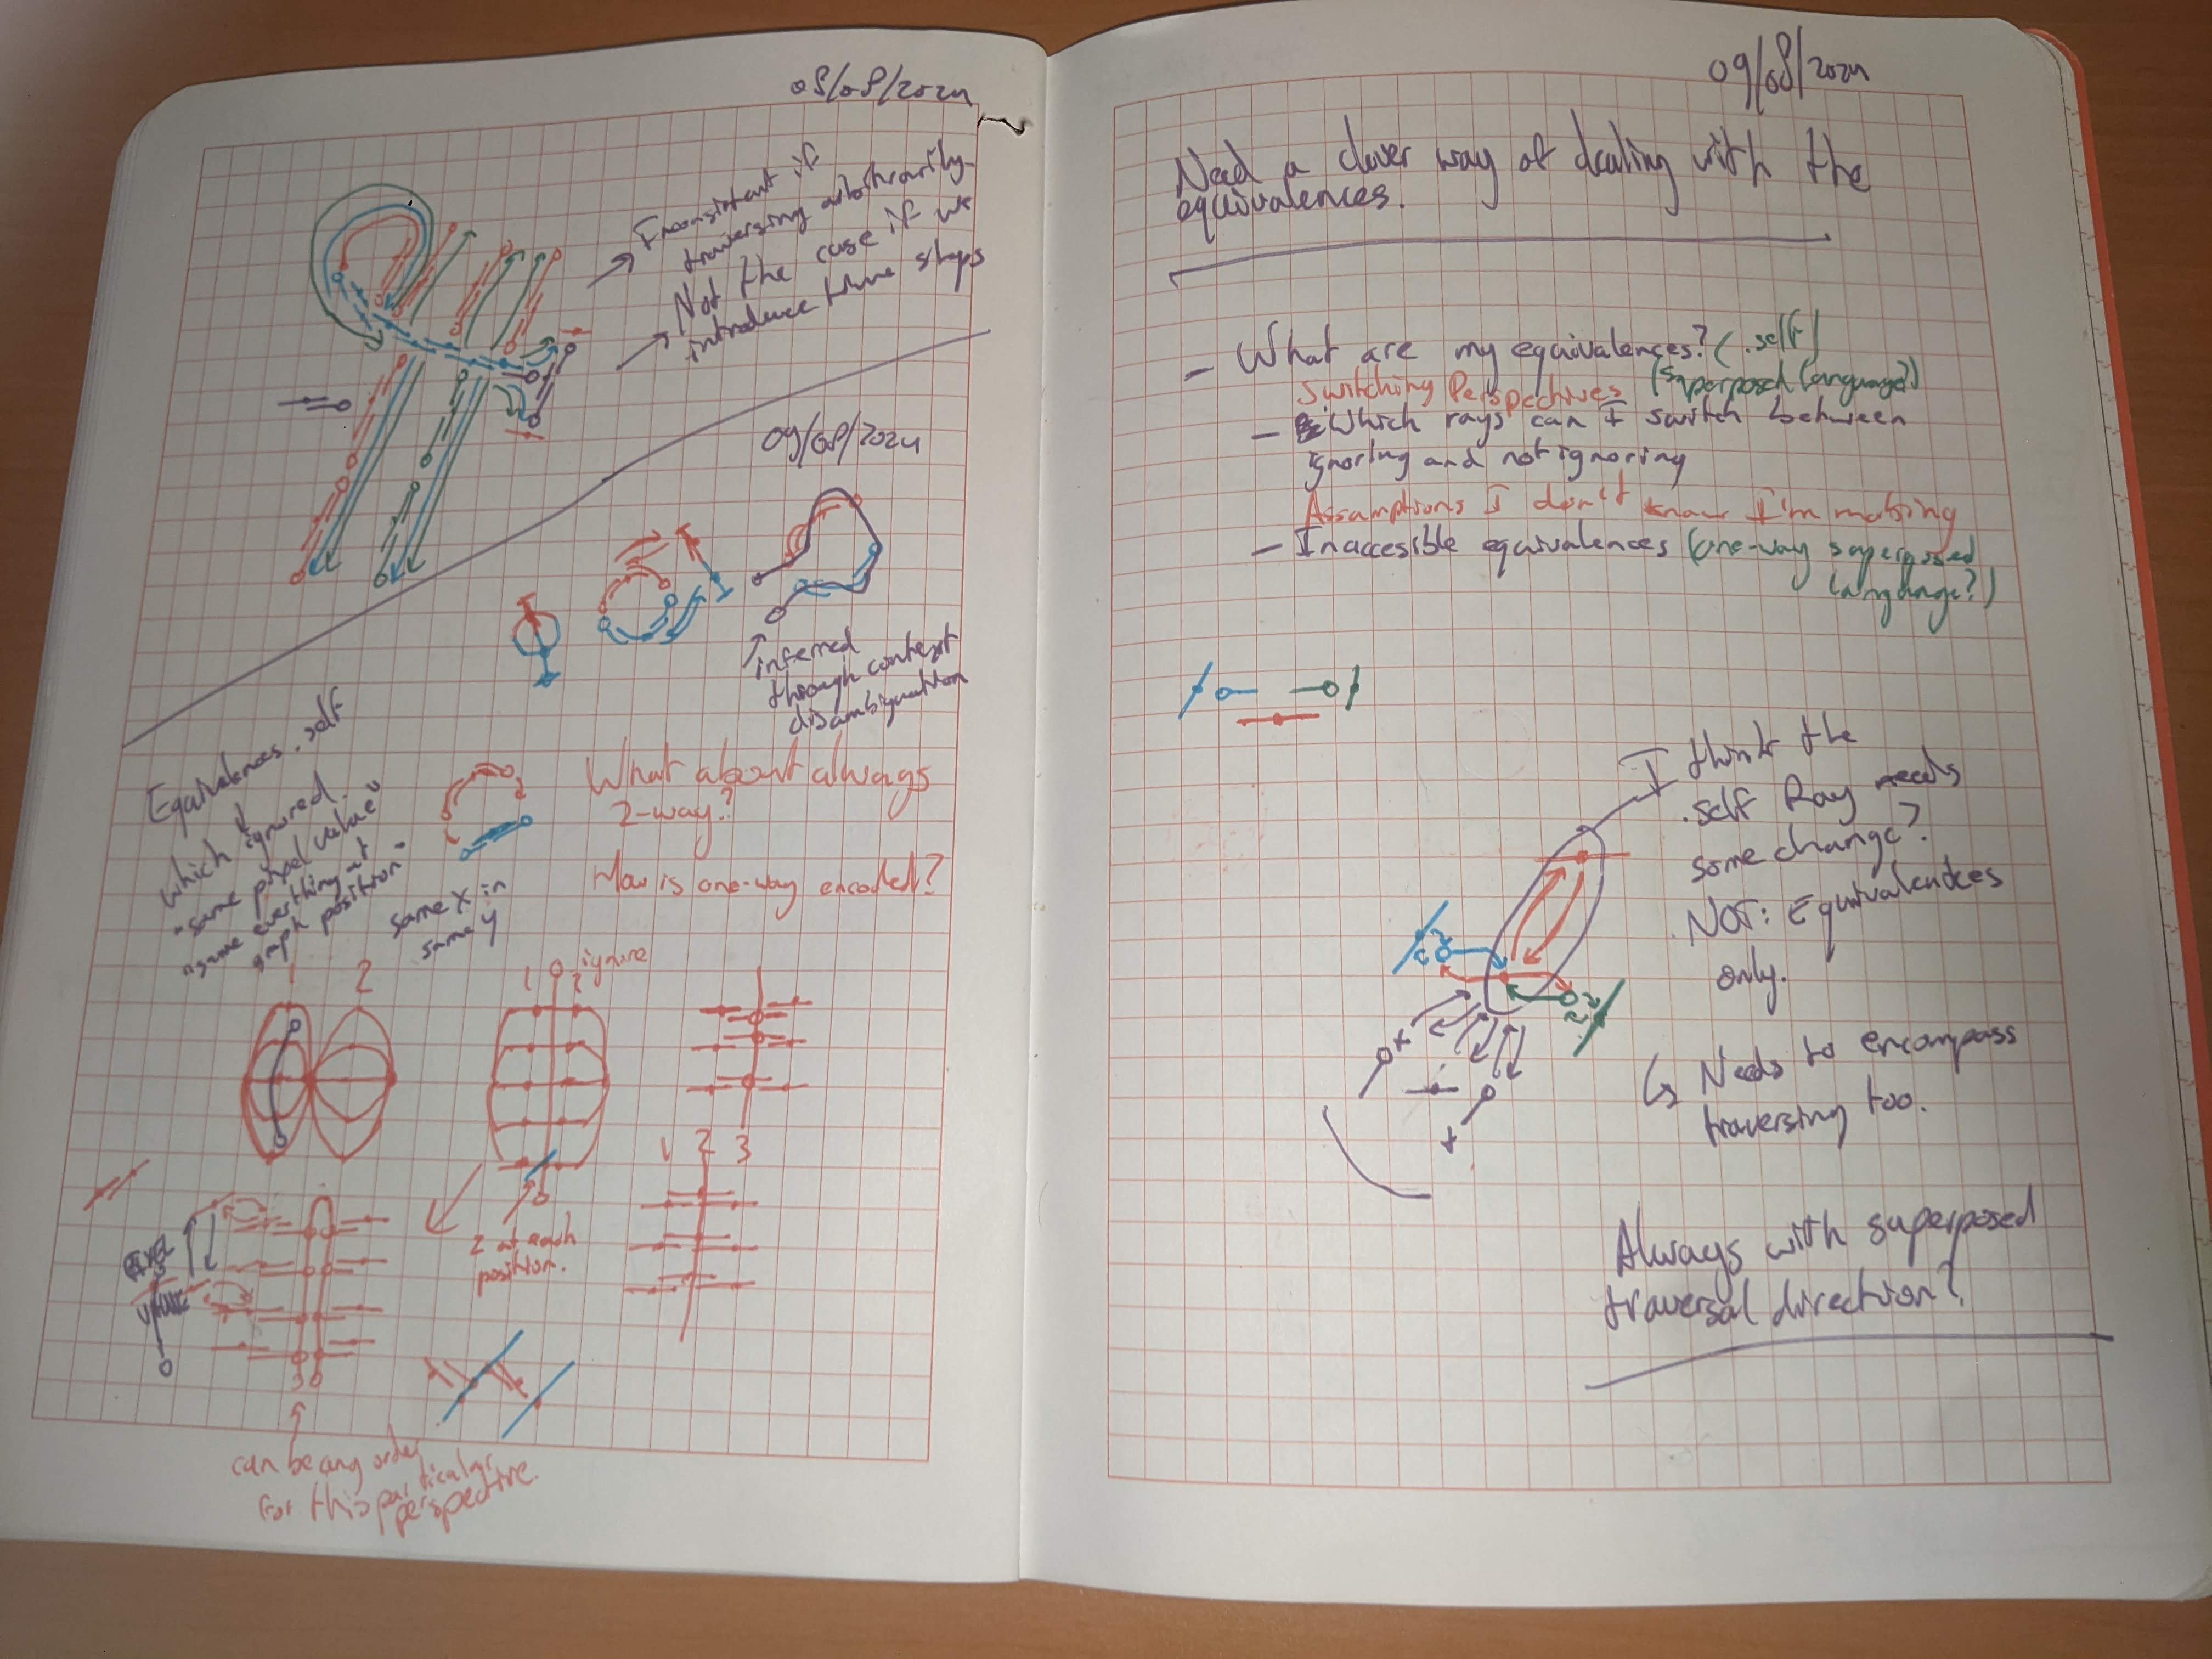 08/08/2024
Inconsistent if
traversing arbitrarily.
Not the case if we
introduce time steps
09/08/2024
inferred
through context
disambiguation
Equivalences .self
which ignored.
"same pixel value"
"same everything at
graph position"
same X in
same y
What about always
2-way?
How is one-way encoded?
1 2
1 2 ignore
2 at each
position.
1 2 3
PIXEL
VALUE
can be any order
for this particular
perspective.
09/08/2024
Need a clever way of dealing with the
equivalences.
- What are my equivalences? (.self)
Switching Perspectives (superposed language?)
- Which rays can I switch between
ignoring and not ignoring
Assumptions I don't know I'm making
- Inaccesible equivalences (one-way superposed
language?)
I think the
.self Ray needs
some change?
NOT: Equivalences
only.
Needs to encompass
traversing too.
Always with superposed
traversal direction?